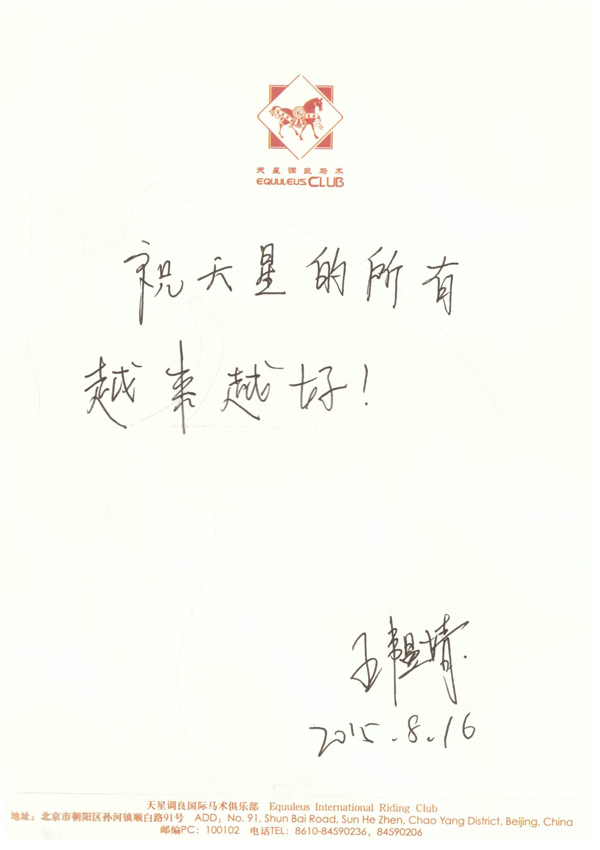 天星调良马术
EQUULEUS CLUB
祝天星的所有
越来越好!
2015.8.16
天星调良国际马术俱乐部 Equuleus International Riding Club
地址：北京市朝阳区孙河镇顺白路91号 ADD: No. 91, Shun Bai Road, Sun He Zhen, Chao Yang District, Beijing, China
邮编PC: 100102 电话TEL: 8610-84590236, 84590206